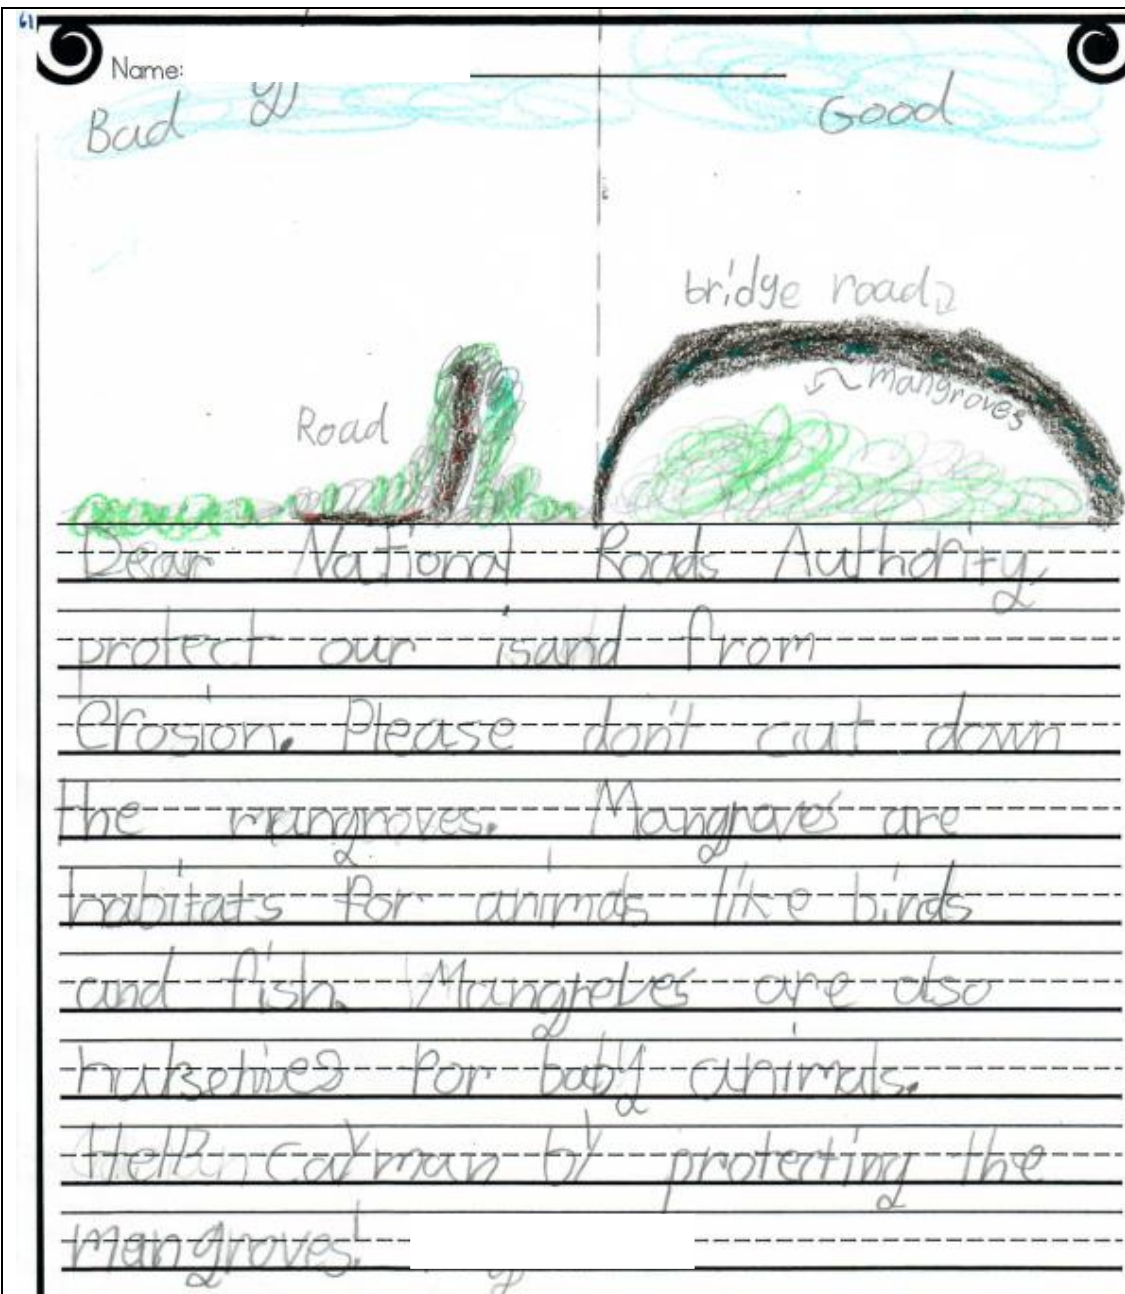 Name:
Bad Good
bridge road
mangroves
Road
Dear National Roads Authority,
protect our isand from
Erosion. Please don't cut down
the mangroves. Mangroves are
habitats for animals like birds
and fish. Mangroves are also
for baby animals.
Help Cayman by protecting the
mangroves!